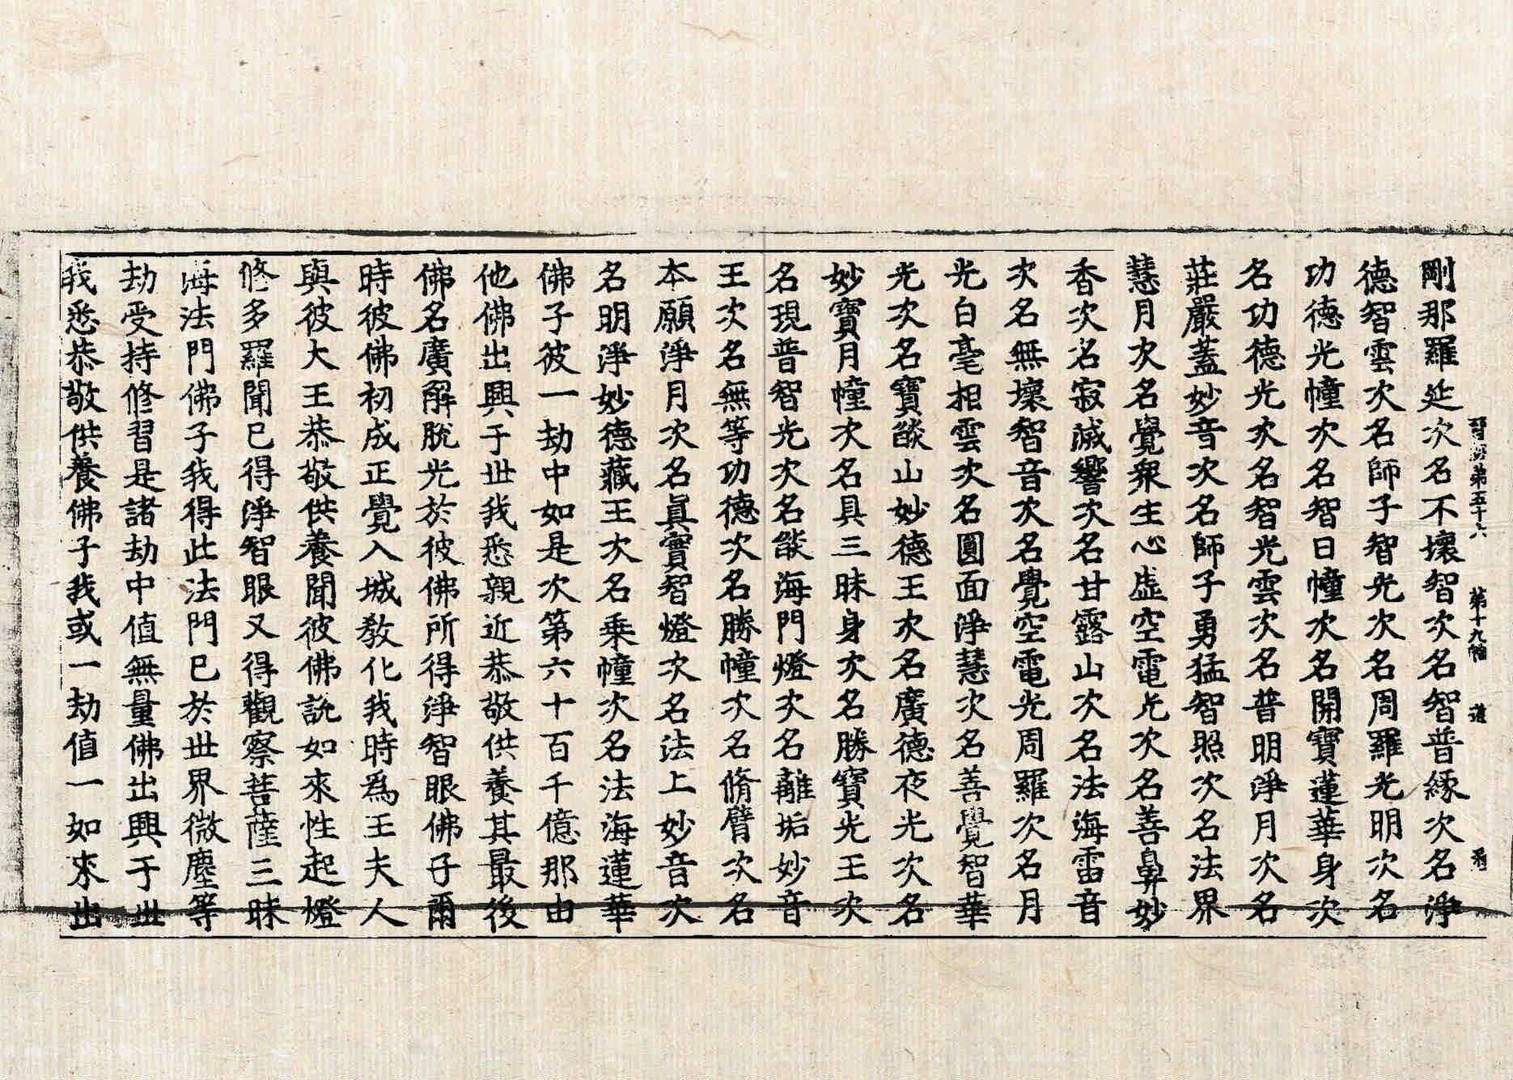 晉經第五十六 第十九幅
剛那羅延次名不壞智次名智普緣次名淨
德智雲次名師子智光次名周羅光明次名
功德光幢次名智日幢次名開寶蓮華身次
名功德光次名智光雲次名普明淨月次名
莊嚴蓋妙音次名師子勇猛智照次名法界
慧月次名覺衆生心虛空電光次名善鼻妙
香次名寂滅響次名甘露山次名法海雷音
次名無壞智音次名覺空電光周羅次名月
光白毫相雲次名圓面淨慧次名善覺智華
光次名寶燄山妙德王次名廣德夜光次名
妙寶月幢次名具三昧身次名勝寶光王次
名現普智光次名燄海門燈次名離垢妙音
王次名無等功德次名勝幢次名脩臂次名
本願淨月次名眞實智燈次名法上妙音次
名明淨妙德藏王次名乘幢次名法海蓮華
佛子彼一劫中如是次第六十百千億那由
他佛出興于世我悉親近恭敬供養其最後
佛名廣解脫光於彼佛所得淨智眼佛子爾
時彼佛初成正覺入城教化我時爲王夫人
與彼大王恭敬供養聞彼佛說如來性起燈
修多羅聞已得淨智眼又得觀察菩薩三昧
海法門佛子我得此法門已於世界微塵等
劫受持修習是諸劫中值無量佛出興于世
我悉恭敬供養佛子我或一劫值一如來出